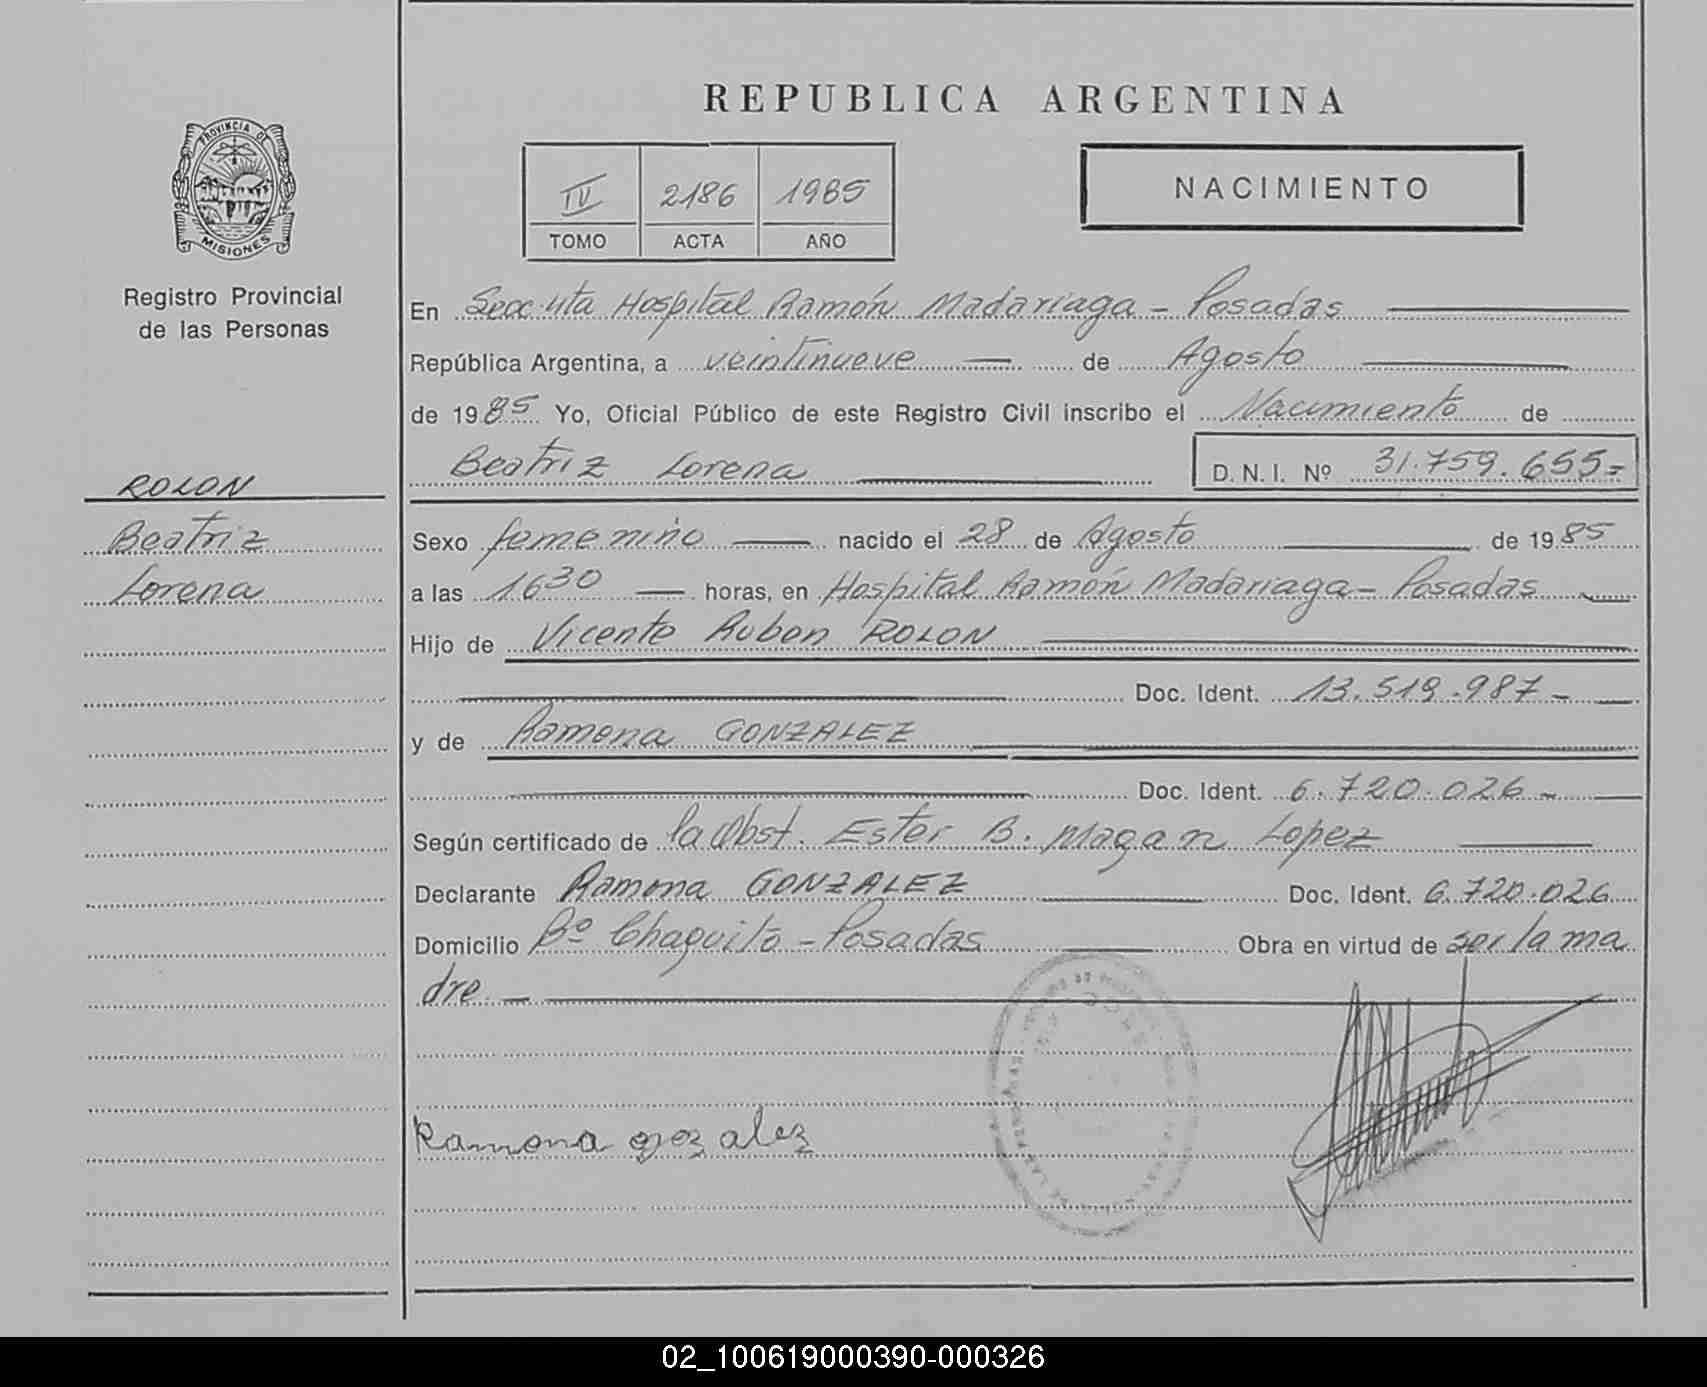 REPUBLICA ARGENTINA
PROVINCIA DE
MISIONES
Registro Provincial
de las Personas
IV 2186 1985
TOMO ACTA AÑO
NACIMIENTO
En Secc. 4ta Hospital Ramón Madariaga - Posadas
República Argentina, a veintinueve de Agosto
de 1985 Yo, Oficial Público de este Registro Civil inscribo el Nacimiento de
Beatriz Lorena D.N.I. Nº 31.759.655=
ROLON
Beatriz
Lorena
Sexo femenino nacido el 28 de Agosto de 1985
a las 1630 horas, en Hospital Ramón Madariaga - Posadas
Hijo de Vicente Ruben ROLON
Doc. Ident. 13.519.987-
y de Ramona GONZALEZ
Doc. Ident. 6.720.026-
Según certificado de la Obst. Ester B. Magan Lopez
Declarante Ramona GONZALEZ Doc. Ident. 6.720.026
Domicilio Bº Chaquito - Posadas Obra en virtud de ser la ma
dre.
Ramona gozalez
02_100619000390-000326